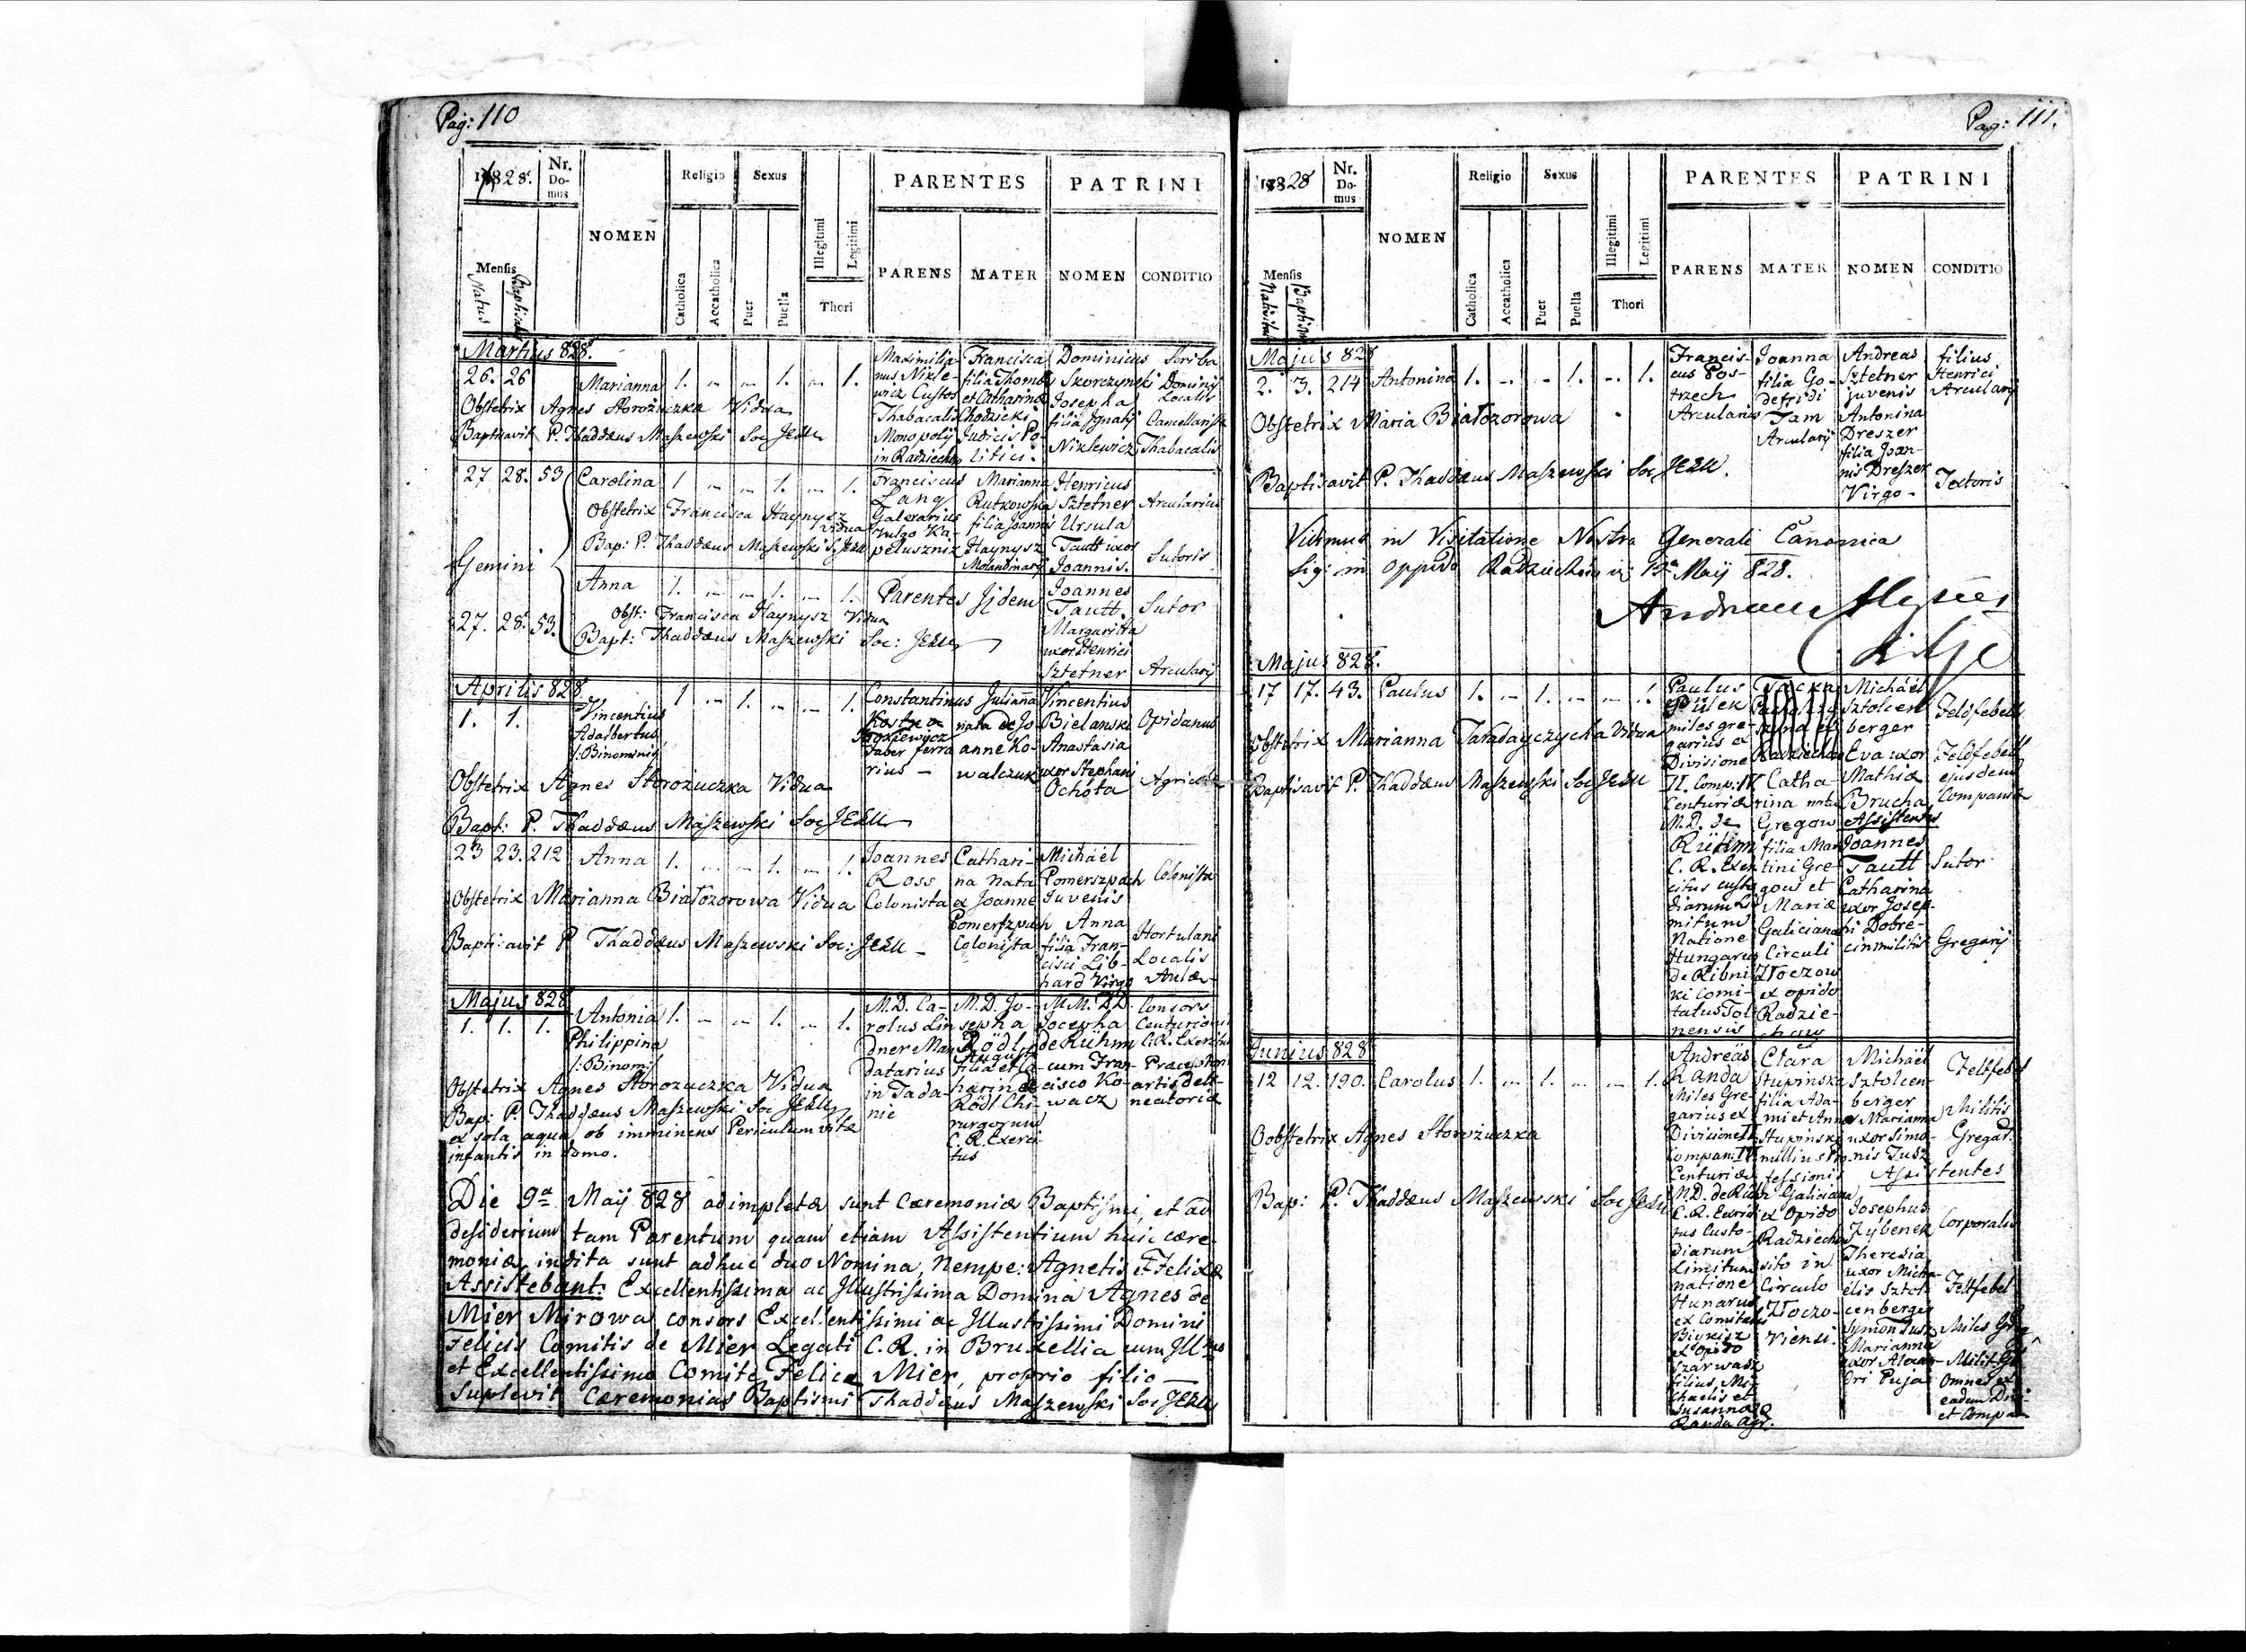 Pag: 110
1828.
Nr. Domus
NOMEN
Religio
Sexus
PARENTES
PATRINI
Mensis
Natus
Catholica
Accatholica
Puer
Puella
Illegitimi
Legitimi
Thori
PARENS
MATER
NOMEN
CONDITIO
Martius 828.
26. 26 Marianna 1. – – 1. – 1.
Maximilia-
nus Nikle-
wicz Custos
Thabacalis
Monopolij
in Radziechow
Francisca
filia Thomæ
et Catharinæ
Chodzicki
Judicis Po-
litici.
Dominicus
Skorczynski
Josepha
filia Ignatij
Niklewicz
Scriba
Dominij
Localis
Thabacalis
Obstetrix Agnes Storożuczka Vidua
Baptisavit P. Thaddæus Maszewski Soc JESU
27 28. 53 Carolina 1 – – 1. – 1.
Franciscus
Lang
Galerarius
vulgo Ka-
pelusznik
Marianna
Rutkowska
filia Joannis
Haynysz
Henricus
Sztetner
Ursula
Tautt uxor
Joannis.
Arcularius
Sutoris
Obstetrix Francisca Haynysz Vidua
Bap: P. Thaddæus Maszewski S. JESU
Gemini
27. 28. 53. Anna 1. – – 1. – 1.
Parentes Jidem
Joannes
Tautt.
Margaritta
uxor Henrici
Sztetner
Sutor
Arcularij
Obst: Francisca Haynysz Vidua
Bapt: Thaddæus Maszewski Soc: JESU
Aprilis 828
1. 1. Vincentius
Adalbertus
/:Binominis
1 – 1. – – 1.
Constantinus
Faber ferra
rius –
Julianna
nata de Jo-
anne Ko-
walczuk
Vincentius
Bielanski
Anastasia
uxor Stephani
Ochota
Opidanus
Obstetrix Agnes Storożuczka Vidua
Bapt: P. Thaddæus Maszewski Soc JESU
23 23. 212 Anna 1. – – 1. – 1.
Joannes
Ross
Colonista
Cathari-
na nata
ex Joanne
Pomerszpach
Colonista
Michäel
Pomerszpach
Juvenis
Anna
filia Fran-
cisci Lib-
hard Virgo
Colonista
Hortulani
Localis
Aulæ
Obstetrix Marianna Białozorowa Vidua
Baptisavit P Thaddæus Maszewski Soc: JESU –
Majus 828
1. 1. 1. Antonia
Philippina
/:Binomi
1. – – 1. – 1.
M.D. Ca-
rolus Lin
dner Man
datarius
in Tada-
nie
M.D. Jo-
sepha
Rödl
Augusti
filia et Ca-
harinæ
Rödl Chi-
rurgorum
C. R. Exerci
tus
M.M. D.D.
Josepha
de Rühm
cum Fran-
cisco Ko-
wacz
Consors
Centurionis
C.R. Exercitus
neatoriæ
Obstetrix Agnes Storożuczka Vidua
Bap: P. Thaddæus Maszewski Soc JESU
ex sola aqua, ob imminens Periculum vitæ
infantis in domo.
Die 9a Maij 828 adimpletæ sunt Cæremoniæ Baptismi, et ad
desiderium tam Parentum quam etiam Assistentium huic cære
moniæ, indita sunt adhuc duo Nomina, Nempe: Agnetis et Felicæ
Assistebant: Excellentissima ac Jllustrissima Domina Agnes de
Mier Mirowa consors Excellentissimi ac Jllustissimi Domini
Felicis Comitis de Mier Legati C. R. in Bruxellia cum
et Excellentissimo Comite Felice Mier, proprio filio –
Suplevit Cæremonias Baptismi Thaddæus Maszewski Soc JESU
Pag: 111.
1828
Nr. Domus
NOMEN
Religio
Sexus
PARENTES
PATRINI
Mensis
Catholica
Accatholica
Puer
Puella
Illegitimi
Legitimi
Thori
PARENS
MATER
NOMEN
CONDITIO
Majus 828
2. 3. 214 Antonina 1. – – 1. – 1.
Francis-
cus Pos-
trzech
Arcularius
Joanna
filia Go-
defridi
Tam
Arcularij
Andreas
Sztetner
juvenis
Antonina
Dreszer
filia Joan-
nis Dreszer
Virgo –
filius
Henrici
Arcularij
Obstetrix Maria Białozorowa
Baptisavit P. Thaddæus Maszewski Soc JESU.
Vidimus in Visitatione Nostra Generali Canonica
Sig: in Oppido Maij 828.
Andreas
Majus 828.
17 17. 43. Paulus 1. – 1. – – 1.
Paulus
miles gre-
garius ex
Divisione
II. Comp: IV
Centuriæ
M.D. de
Rühm
C. R. Exer
citus custo
diarum Li
mitum
Natione
Hungarus
de Ribni
ki Comi-
tatus Tol
nensis
Catha-
rina nata
Gregow
filia Mar
tini Gre-
gow et
Mariæ
Galiciana
Circuli
Złoczow
ex opido
Radzie-
chow
Michäel
Sztolcen
berger
Eva uxor
Mathiæ
Brucha
Assistentes
Joannes
Tautt
Catharina
uxor Josep-
hi Dobre-
cin militis
Feldfebell
Feldfebell
ejusdem
Companiæ
Sutor
Gregarij
Obstetrix Marianna Taradayczycha Vidua
Baptisavit P. Thaddæus Maszewski Soc JESU
Junius 828
12 12. 190. Carolus 1. – 1. – – 1.
Andreäs
Randa
Miles Gre-
garius ex
Compan: IV
Centuriæ
tus Custo-
diarum
Limitum
natione
Hunarus
ex Comitatu
ex opido
Szarwasz
filius Mi-
chaelis et
Susannæ
Randa Agr.
Clara
Stupinska
filia Ada-
mi et Annæ
Stupinski
nullius Pro
fessionis
Galiciana
ex Opido
Radziechow
sito in
Circulo
Złoczo-
viensi.
Michäel
Sztolcen-
berger
Marianna
uxor Simo-
nis Tusz
Assistentes
Josephus
Zybenek
Theresia
uxor Micha-
elis Sztol-
cenberger
Symon Tusz
Marianna
uxor Alexan-
dri Puja
Feltfebel
Militis
Gregar.
Corporalis
Feltfebel
Miles Gre
Milit. Gr
omnes ex
eadem Divi
et Compan
Oobstetrix Agnes Storożuczka
Bap: P. Thaddæus Maszewski Soc Jesu